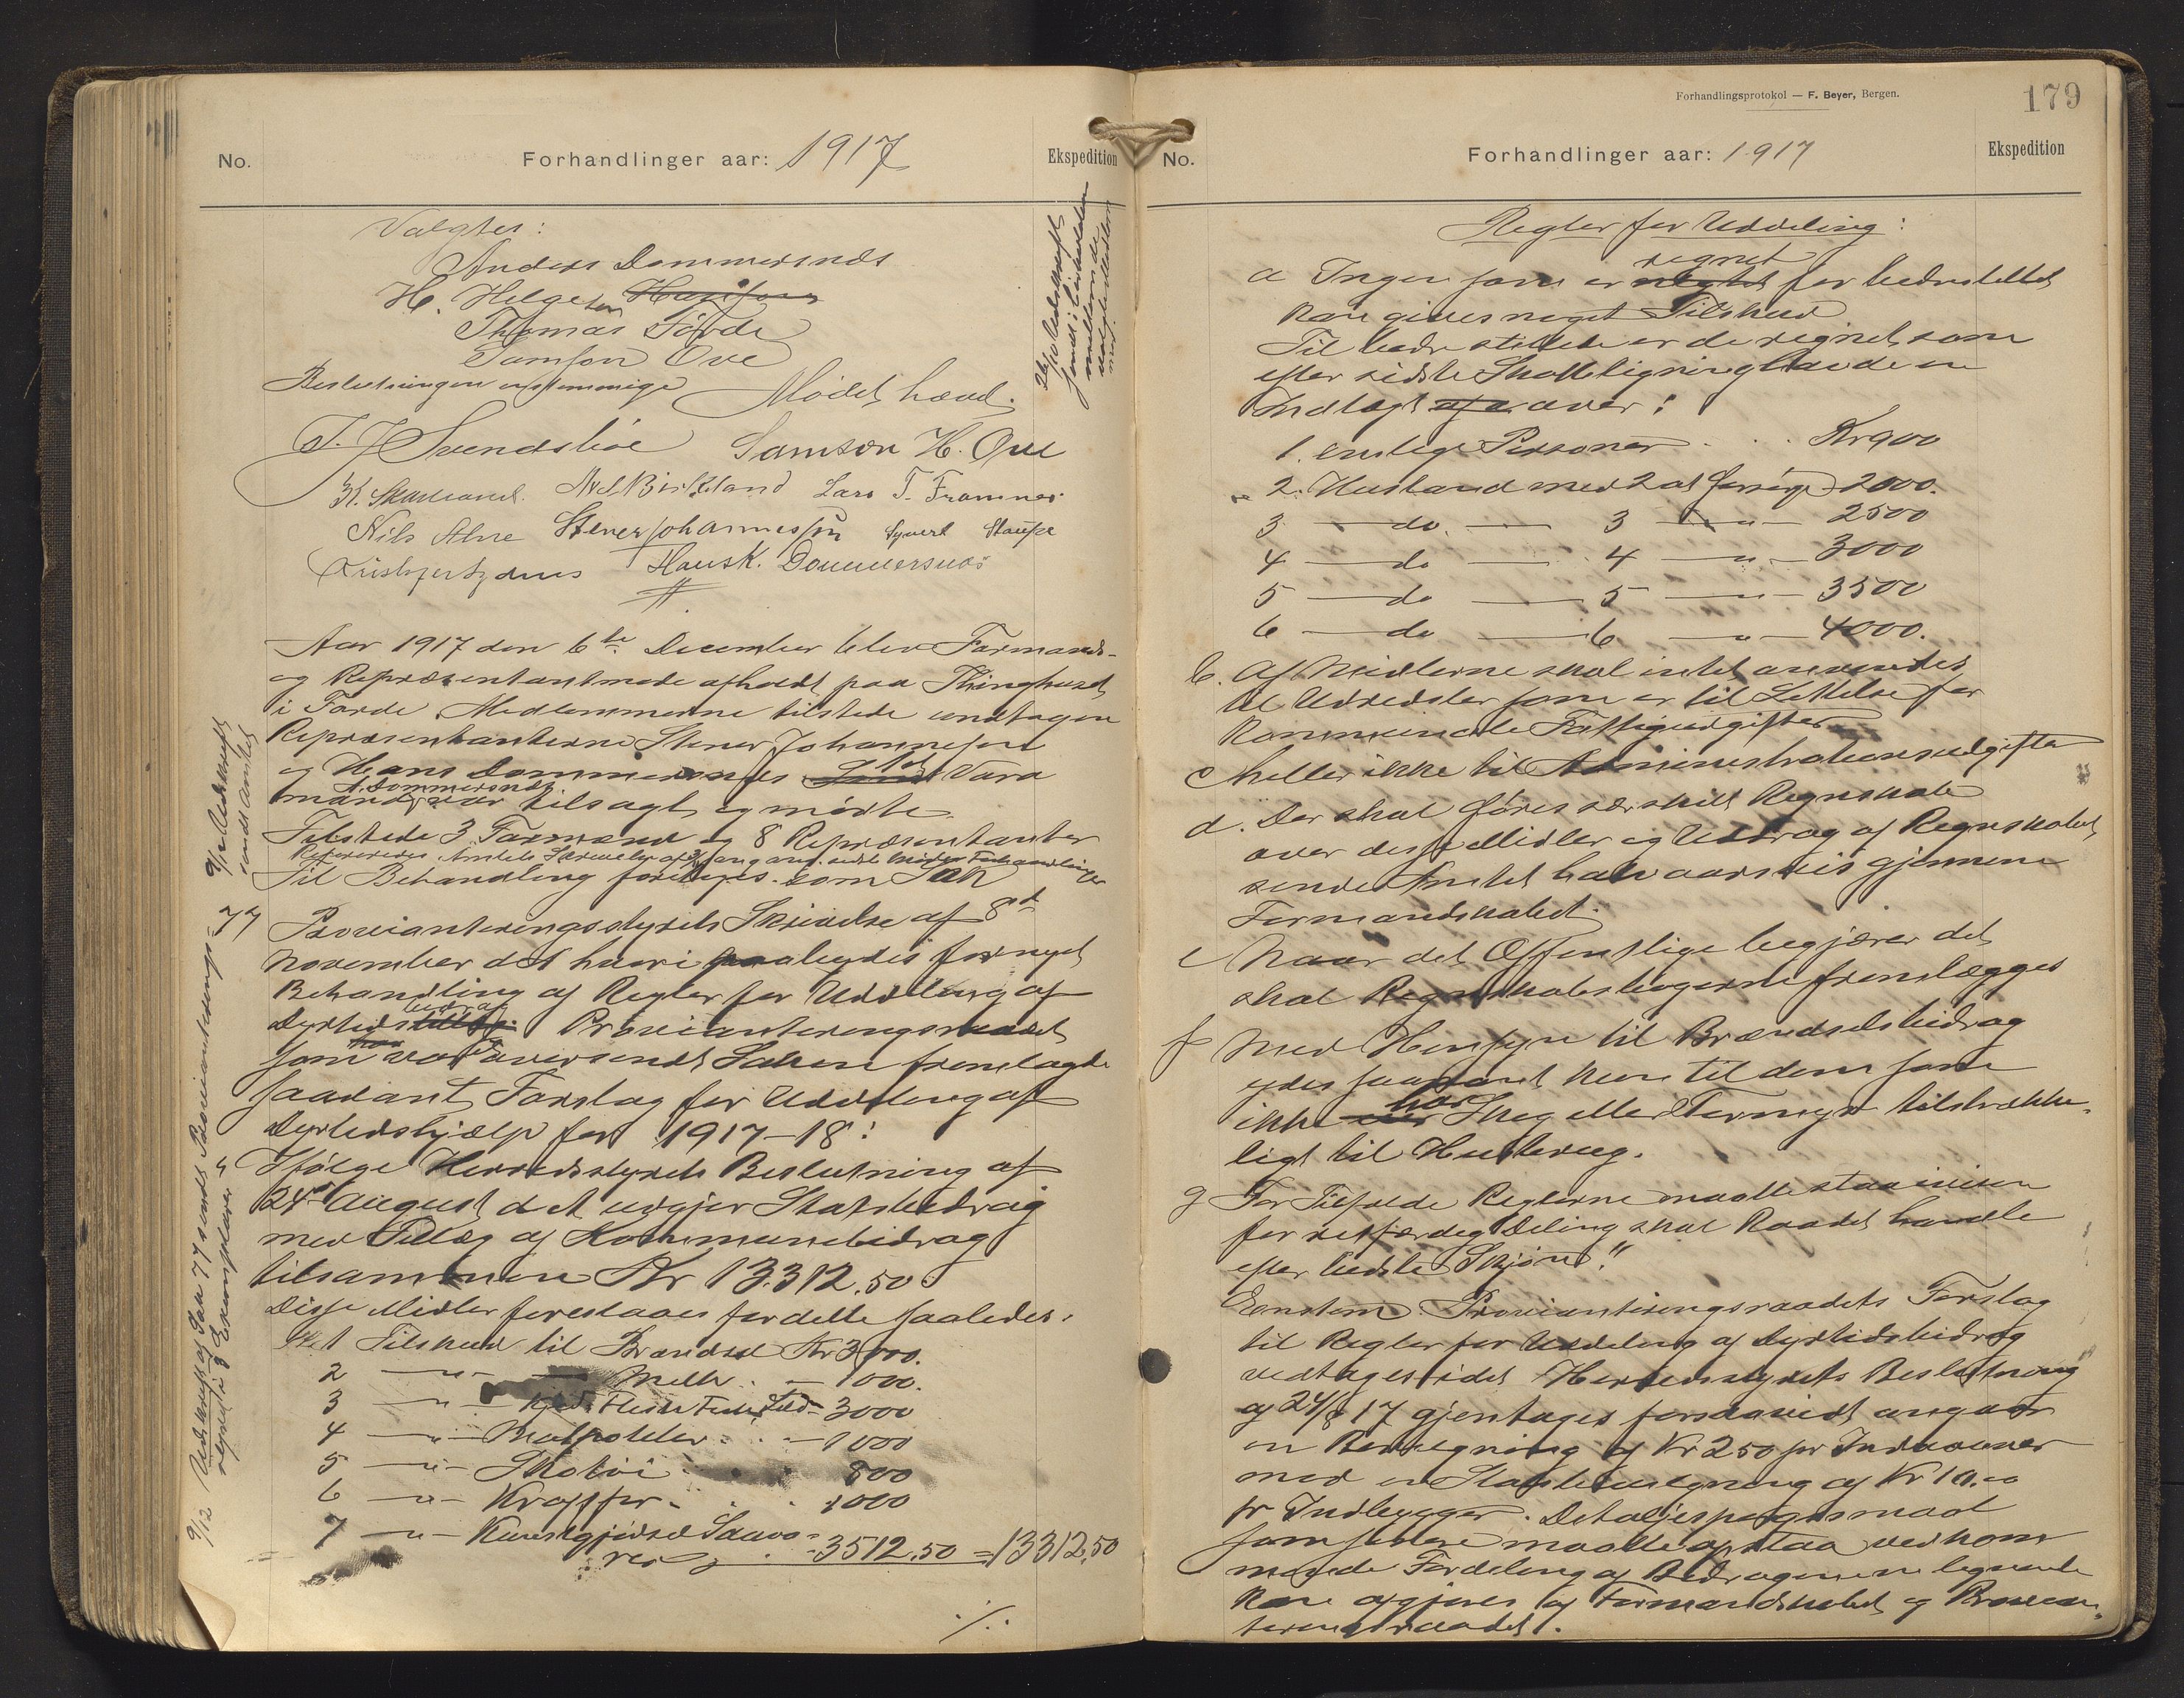 No.
Forhandlinger aar: 1917
Ekspedition
Valgtes:
Anders Dommersnes
H. Helgesen
Thomas Førde
Samson Ove
Beslutningen enstemmige Mødet hævet.
Svendsbøe Samson H. Ove
Nils Birkeland Lars T. Framnes
Nils Alne Stener Johannessen Syvert Staupe
Hans K. Dommersnes
Aar 1917 den 6te December blev Formands-
og Repræsentantmøde afholdt paa Thinghuset
i Førde. Medlemmerne tilstede undtagen
Repræsentanterne Stener Johannesen
og Hans Dommersnes Vara
mand A. Dommersnes var tilsagt og mødte.
Tilstede 3 Formænd og 8 Repræsentanter
Til Behandling foretoges som Sak
77 Provianteringsstyrets Skrivelse af 8de
November d A hvori paabydes fornyet
Behandling af Regler for Uddeling af
Dyrtidsbidrag. Provianteringsraadet
som var oversendt Saken fremlagde
saadant Forslag for Uddeling af
Dyrtidshjælp for 1917-18:
Ifølge Herredsstyrets Beslutning af
24de August d A udgjør Statsbidrag
med Tillæg af Kommunebidrag
tilsammen Kr 13.312.50.
Disse Midler foreslaaes fordelte saaledes:
1 Tilskud til Brændsel Kr 3000.
2 —"— Melk — 1000.
3 —"— Kjød Flesk Fisk Sild — 3000
4 —"— Matpoteter — 1000
5 —"— Skotøi 800
6 —"— Kraftfor 1000
7 —"— Kunstgjødsel Saavarer 3512.50 = 13312,50
./.
9/12 Udskrift sendt Amtet
9/12 Udskrift af Sak 77 sendt Provianterings- i 3 Exemplarer
Forhandlingsprotokol — F. Beyer, Bergen.
179
No.
Forhandlinger aar: 1917
Ekspedition
Regler for Uddeling:
a Ingen som er regnet for bedrestillet
kan gives noget Tilskud
Til bedre stillede er de regnet som
efter sidste Skatteligning havde en
Indtægt over:
1. enslige Personer Kr 900
2. Husstand med 2 at forsørge 2000.
3 — do. — 3 —"— 2500
4 — do — 4 —"— 3000
5 — do — 5 —"— 3500
6 — do — 6 —"— 4000.
b. Af Midlerne skal intet anvendes
til Udredsler som er til Lettelse for
kommunale Fattigudgifter
c heller ikke til Administrationsudgifter
d. Der skal føres særskilt Regnskab
over disse Midler og Uddrag af Regnskabet
sendes Amtet halvaarsvis gjennem
Formandskabet.
e Naar det Offentlige begjærer det
skal Regnskabsbøgerne fremlægges
f Med Hensyn til Brændselsbidrag
ydes saadant kun til dem som
ikke har Skog eller Torvmyr tilstrække-
ligt til Husbrug.
g For Tilfælde Reglerne maatte staa iveien
for retfærdig Deling skal Raadet handle
efter bedste Skjøn."
Eenstem. Provianteringsraadets Forslag
til Regler for Uddeling af Dyrtidsbidrag
vedtages idet Herredsstyrets Beslutning
af 24/8 17 gjentages forsaavidt angaar
en Bevilgning af Kr 2.50 pr Indvaaner
med en Statsbevilgning af Kr 10.00
pr Indbygger. Detaljespørgsmaal
som senere maatte opstaa vedkom-
mende Fordeling af Bidragene
kan afgjøres af Formandskabet og Provian-
teringsraadet.